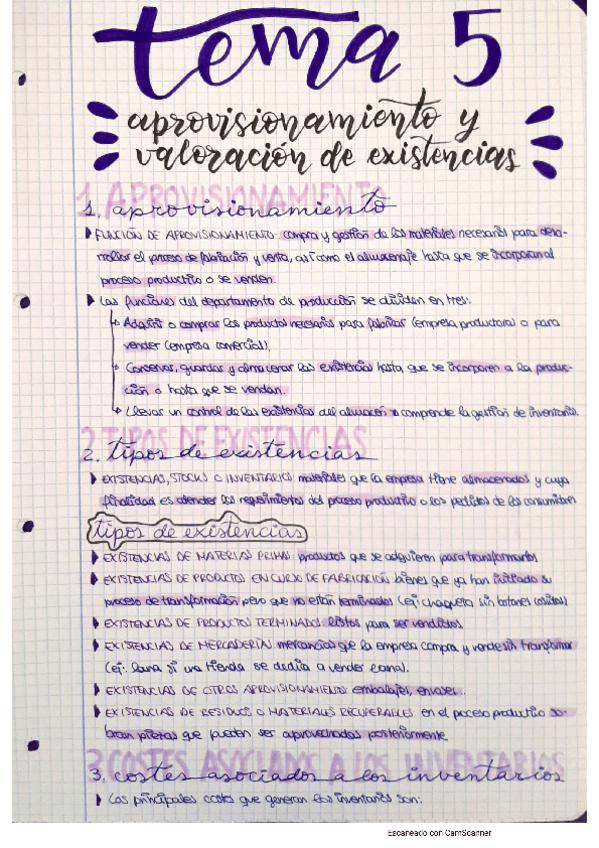 tema 5
aprovisionamiento y
valoración de existencias
1. APROVISIONAMIENTO
1. aprovisionamiento
FUNCIÓN DE APROVISIONAMIENTO: compra y gestión de los materiales necesarios para desa-
rrollar el proceso de fabricación y venta, así como el almacenaje hasta que se incorporan al
proceso productivo o se venden.
Las funciones del departamento de producción se dividen en tres:
Adquirir o comprar los productos necesarios para fabricar (empresa productora) o para
vender (empresa comercial).
Conservar, guardar y almacenar las existencias hasta que se incorporen a la produc-
ción o hasta que se vendan.
Llevar un control de las existencias del almacén comprende la gestión de inventarios.
2 TIPOS DE EXISTENCIAS
2. tipos de existencias
EXISTENCIAS, STOCKS O INVENTARIOS materiales que la empresa tiene almacenados y cuya
finalidad es atender los requerimientos del proceso productivo o los pedidos de los consumidores
tipos de existencias
EXISTENCIAS DE MATERIAS PRIMAS: productos que se adquieren para transformarlos
EXISTENCIAS DE PRODUCTO EN CURSO DE FABRICACIÓN bienes que ya han iniciado su
proceso de transformación pero que no están terminados (ej: chaqueta sin botones cosidos)
EXISTENCIAS DE PRODUCTO TERMINADO: listos para ser vendidos.
EXISTENCIAS DE MERCADERÍA: mercancías que la empresa compra y vende sin transformar
(ej: lana si una tienda se dedica a vender lana).
EXISTENCIAS DE OTROS APROVISIONAMIENTO: embalajes, envases...
EXISTENCIAS DE RESIDUOS O MATERIALES RECUPERABLES: en el proceso productivo so-
bran piezas que pueden ser aprovechadas posteriormente
3 COSTES ASOCIADOS A LOS INVENTARIOS
3. costes asociados a los inventarios
Los principales costes que generan los inventarios son:
Escaneado con CamScanner